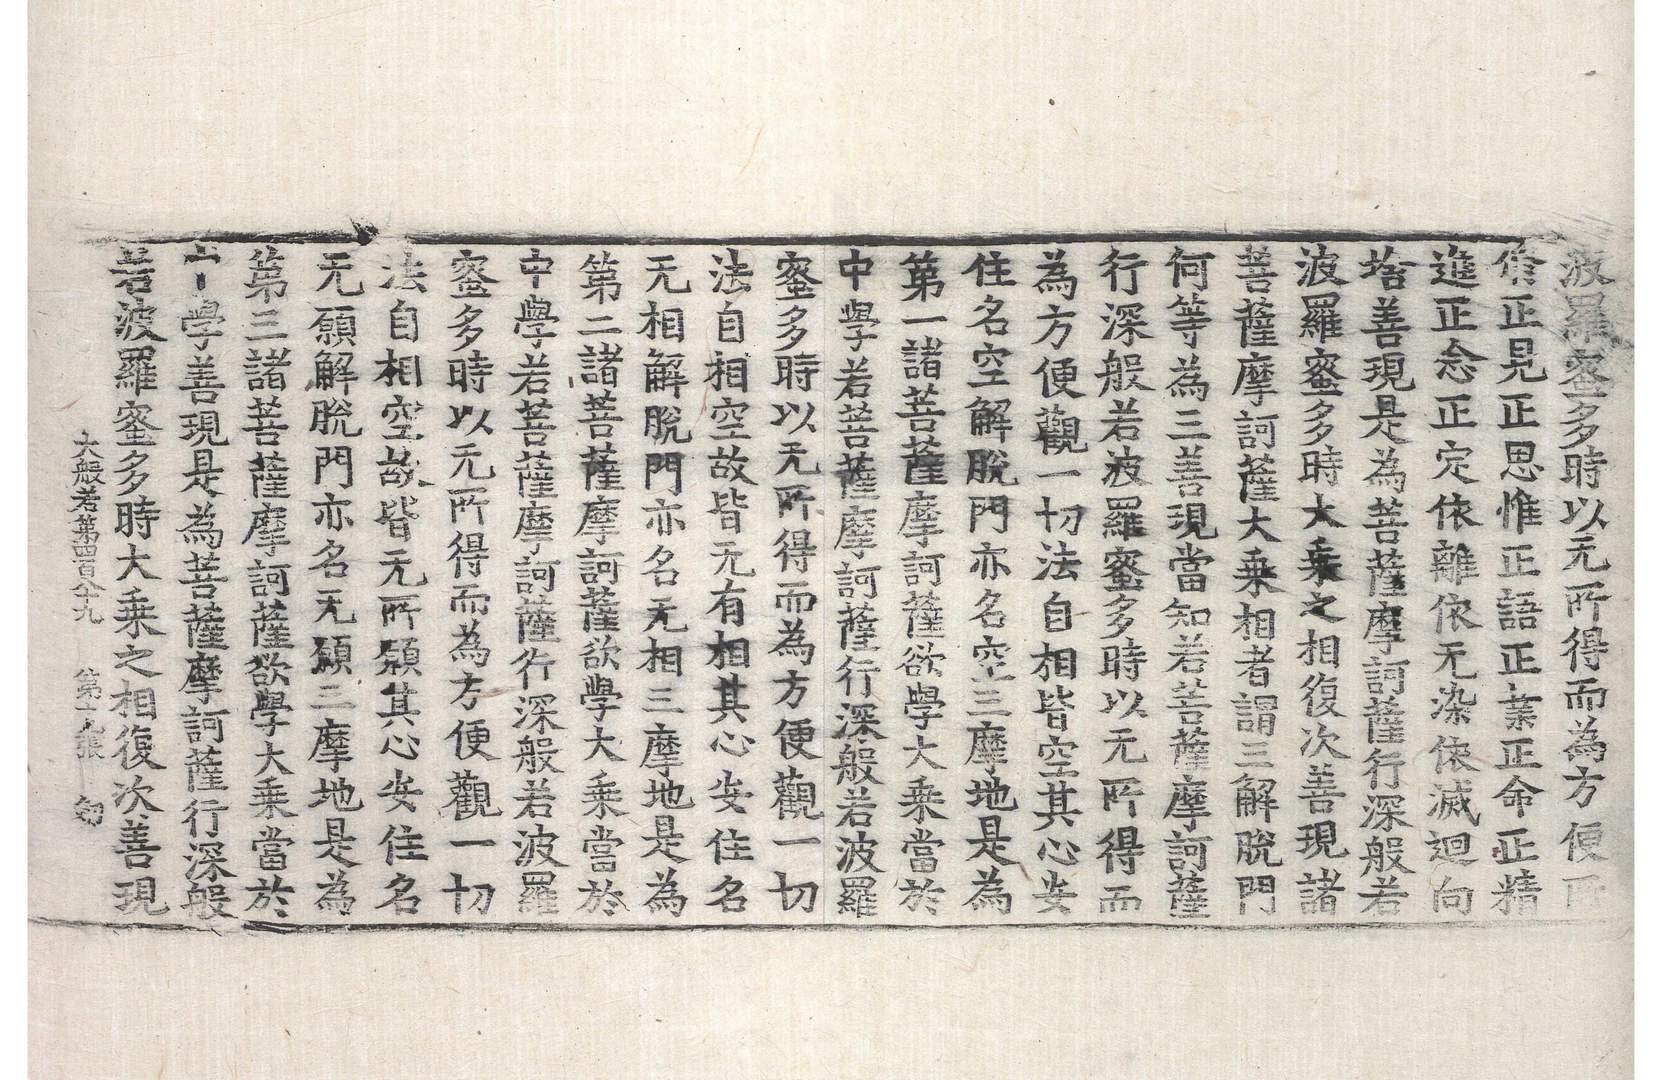 波羅蜜多時以无所得而為方便所
修正見正思惟正語正業正命正精
進正念正定依離依无染依滅迴向
捨善現是為菩薩摩訶薩行深般若
波羅蜜多時大乗之相復次善現諸
菩薩摩訶薩大乗相者謂三解脫門
何等為三善現當知若菩薩摩訶薩
行深般若波羅蜜多時以无所得而
為方便觀一切法自相皆空其心安
住名空解脫門亦名空三摩地是為
第一諸菩薩摩訶薩欲學大乗當於
中學若菩薩摩訶薩行深般若波羅
蜜多時以无所得而為方便觀一切
法自相空故皆无有相其心安住名
无相解脫門亦名无相三摩地是為
第二諸菩薩摩訶薩欲學大乗當於
中學若菩薩摩訶薩行深般若波羅
蜜多時以无所得而為方便觀一切
法自相空故皆无所願其心安住名
无願解脫門亦名无願三摩地是為
第三諸菩薩摩訶薩欲學大乗當於
中學善現是為菩薩摩訶薩行深般
若波羅蜜多時大乗之相復次善現
大般若第四百八十九 第十九張